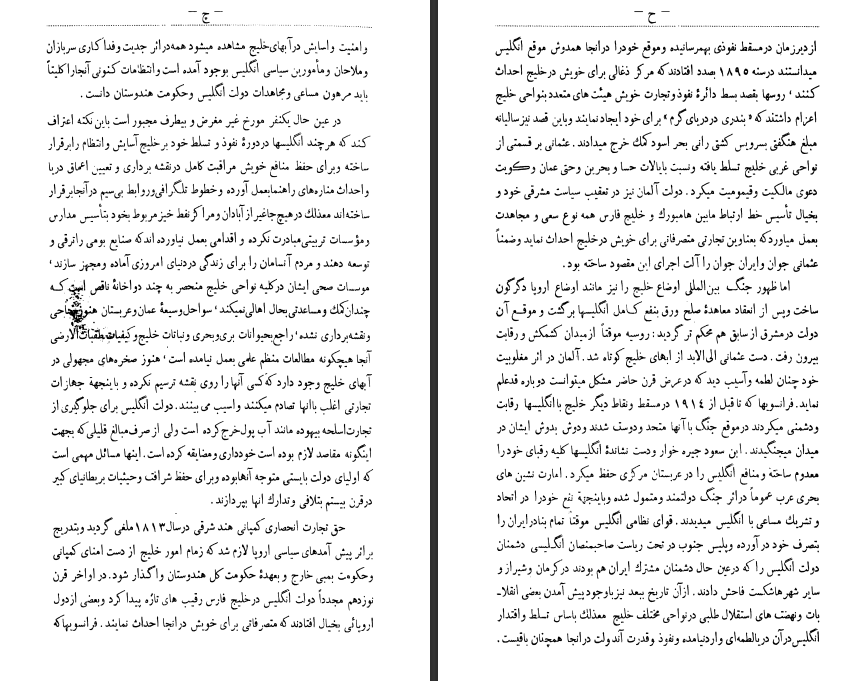 - چ -
وامنیت واسایش درآبهای خلیج مشاهده میشود همه دراثر جدیت وفداکاری سربازان
وملاحان ومأمورین سیاسی انگلیس بوجود آمده است وانتظامات کنونی آنجارا کلیتاً
باید مرهون مساعی ومجاهدات دولت انگلیس وحکومت هندوستان دانست .
در عین حال یکنفر مورخ غیر مغرض و بیطرف مجبور است باین نکته اعتراف
کند که هرچند انگلیسها دردورهٔ نفوذ و تسلط خود بر خلیج آسایش وانتظام رابرقرار
ساخته وبرای حفظ منافع خویش مراقبت کامل درنقشه برداری و تعیین اعماق دریا
واحداث مناره های راهنمابعمل آورده وخطوط تلگرافی وروابط بی سیم در آنجابرقرار
ساخته اند معذلك در هیچ جاغیر از آبادان ومراکز نفط خیز مربوط بخود بتأسیس مدارس
ومؤسسات تربیتی مبادرت نکرده و اقدامی بعمل نیاورده اند که صنایع بومی راترقی و
توسعه دهند و مردم آنسامان را برای زندگی دردنیای امروزی آماده ومجهز سازند،
موسسات صحی ایشان در کلیه نواحی خلیج منحصر به چند دواخانهٔ ناقص است که
چندان کمك ومساعدتی بحال اهالی نمیکند، سواحل وسیعهٔ عمان وعربستان هنوز مساحی
ونقشه برداری نشده، راجع بحیوانات بری وبحری ونباتات خلیج وکیفیات طبقات الارضی
آنجا هیچگونه مطالعات منظم علمی بعمل نیامده است، هنوز صخره های مجهولی در
آبهای خلیج وجود دارد که کسی آنها را روی نقشه ترسیم نکرده و باینجهة جهازات
تجارتی اغلب باانها تصادم میکنند واسیب می بینند . دولت انگلیس برای جلوگیری از
تجارت اسلحه بیهوده مانند آب پول خرج کرده است ولی از صرف مبالغ قلیلی که بجهت
اینگونه مقاصد لازم بوده است خودداری ومضایقه کرده است . اینها مسائل مهمی است
که اولیای دولت بایستی متوجه آنهابوده وبرای حفظ شرافت وحیثیات بریطانیای کبیر
در قرن بیستم بتلافی وتدارك انها بپردازند .
حق تجارت انحصاری کمپانی هند شرقی درسال ۱۸۱۳ ملغی گردید وبتدریج
براثر پیش آمدهای سیاسی اروپا لازم شد که زمام امور خلیج از دست امنای کمپانی
وحکومت بمبی خارج و بعهدهٔ حکومت کل هندوستان واگذار شود . در اواخر قرن
نوزدهم مجدداً دولت انگلیس درخلیج فارس رقیب های تازه پیدا کرد وبعضی ازدول
اروپائی بخیال افتادند که متصرفاتی برای خویش درانجا احداث نمایند . فرانسویها که
- ح -
ازدیرزمان درمسقط نفوذی بهمرسانیده وموقع خودرا درانجا همدوش موقع انگلیس
میدانستند درسنه ۱۸۹۵ بصدد افتادند که مرکز ذغالی برای خویش درخلیج احداث
کنند، روسها بقصد بسط دائرهٔ نفوذ وتجارت خویش هیئت های متعدد بنواحی خلیج
اعزام داشتند که « بندری در دریای گرم » برای خود ایجاد نمایند وباین قصد نیز سالیانه
مبلغ هنگفتی بسرویس کشتی رانی بحر اسود کمك خرج میدادند . عثمانی بر قسمتی از
نواحی غربی خلیج تسلط یافته ونسبت بایالات حسا و بحرین وحتی عمان وکویت
دعوی مالکیت وقیمومیت میکرد . دولت آلمان نیز در تعقیب سیاست مشرقی خود و
بخیال تأسیس خط ارتباط مابین هامبورك و خلیج فارس همه نوع سعی و مجاهدت
بعمل میاورد که بعناوین تجارتی متصرفاتی برای خویش درخلیج احداث نماید وضمناً
عثمانی جوان وایران جوان را آلت اجرای این مقصود ساخته بود .
اما ظهور جنگ بین المللی اوضاع خلیج را نیز مانند اوضاع اروپا دگرگون
ساخت وپس از انعقاد معاهدهٔ صلح ورق بنفع کامل انگلیسها برگشت و موقع آن
دولت درمشرق از سابق هم محکم تر گردید : روسیه موقتاً ازمیدان کشمکش و رقابت
بیرون رفت . دست عثمانی الی الابد از ابهای خلیج کوتاه شد . آلمان در اثر مغلوبیت
خود چنان لطمه وآسیب دید که در عرض قرن حاضر مشکل میتوانست دوباره قدعلم
نماید . فرانسویها که تا قبل از ۱۹۱۴ درمسقط ونقاط دیگر خلیج باانگلیسها رقابت
ودشمنی میکردند درموقع جنگ با آنها متحد ودوست شدند ودوش بدوش ایشان در
میدان میجنگیدند . ابن سعود جیره خوار ودست نشاندهٔ انگلیسها کلیه رقبای خودرا
معدوم ساخته ومنافع انگلیس را در عربستان مرکزی حفظ میکرد . امارت نشین های
بحری عرب عموماً دراثر جنگ دولتمند ومتمول شده وباینجهة نفع خودرا در اتحاد
و تشریك مساعی با انگلیس میدیدند . قوای نظامی انگلیس موقتاً تمام بنادرایران را
بتصرف خود در آورده وپلیس جنوب در تحت ریاست صاحبمنصبان انگلیسی دشمنان
دولت انگلیس را که درعین حال دشمنان مشترك ایران هم بودند در کرمان وشیراز و
سایر شهرهاشکست فاحش دادند . ازآن تاریخ ببعد نیز باوجود پیش آمدن بعضی انقلا-
بات ونهضت های استقلال طلبی در نواحی مختلف خلیج معذلك باساس تسلط واقتدار
انگلیس درآن دریالطمه ای واردنیامده ونفوذ وقدرت آندولت درانجا همچنان باقیست .